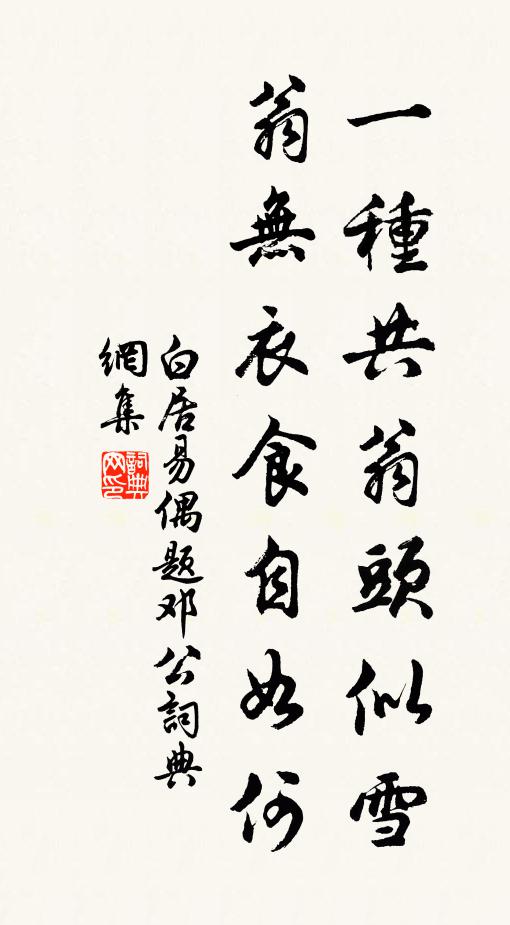 一種共翁頭似雪
翁無衣食自如何
白居易偶题邓公詞典
網集
詞典
网印